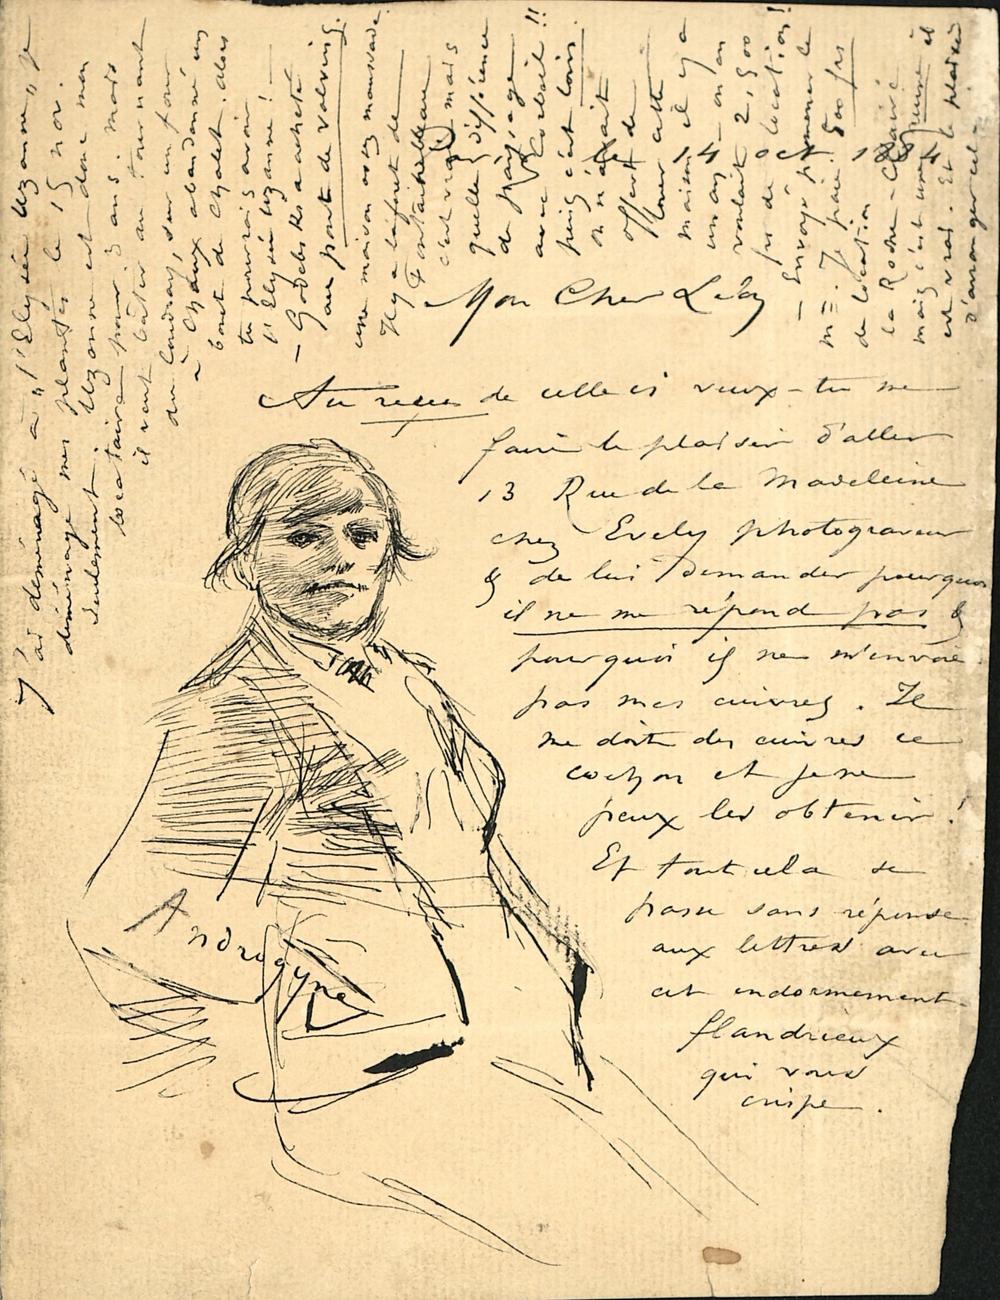 14 oct 1884
Mon Cher Léon
Au reçu de celle ci veux-tu me
faire le plaisir d'aller
13 Rue de la Madeleine
chez Evely photograveur
& de lui demander pourquoi
il ne me répond pas &
pourquoi il ne m'envoie
pas mes cuivres. Il
me doit des cuivres ce
cochon et je ne
peux les obtenir !
Et tout cela se
passe sans réponse
aux lettres avec
cet endormement
flandrieux
qui vous
crispe.
Androgyne
J'ai déménagé à "l'Elysée Uzanne", je
déménage mes plantes le 15 nov.
seulement. Uzanne est donc mon
locataire pour 3 ans. mais
il veut bâtir au tournant
du Coudray, sur un four
à chaux abandonné un
bout de chalet. alors
tu pourrais avoir
l'Elysée Uzanne ! —
— Godebski a acheté
au pont de Valvins
une maison assez maussade
Il y a la forêt de
Fontainebleau
c'est vrai mais
quelle différence
de paysage
avec Corbeil !!
puis c'est loin.
on m'avait
offert de
louer cette
maison il y a
un an – on en
voulait 2,500
fr de location !
— Envoyé promener le
mr. Je paie 500 frs
de location
la Roche-Claire
mais c'est une ruine il
est vrai. Et le plaisir
d'arranger cela